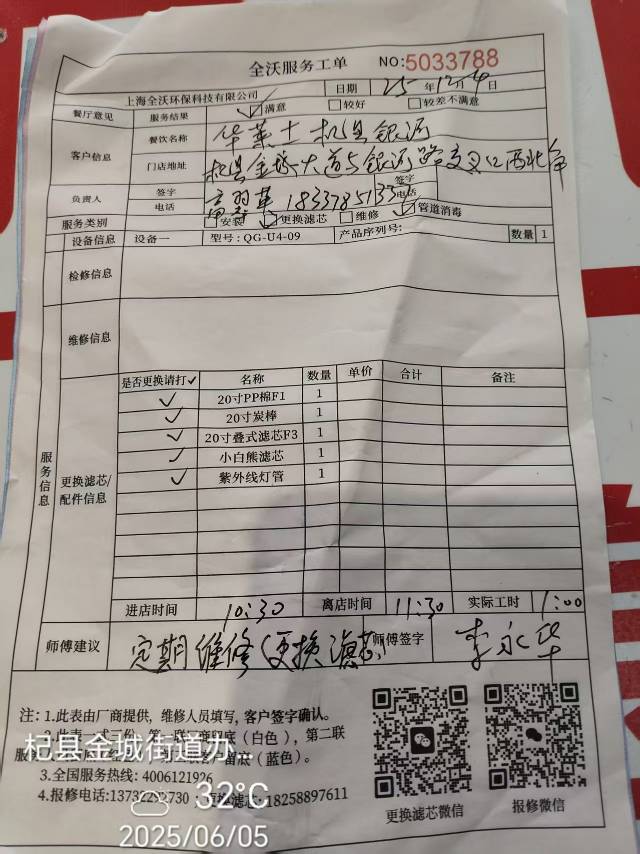 全沃服务工单 NO:5033788
上海全沃环保科技有限公司 日期 25年12月4日
餐厅意见 服务结果 ☑满意 □较好 □较差不满意
客户信息 餐饮名称 华莱士杞县银河
门店地址 杞县金城大道与银河路交叉口西北角
负责人 签字 签字
电话 183378513 电话
服务类别 □安装 ☑更换滤芯 □维修 ☑管道消毒
设备信息 设备一 型号:QG-U4-09 产品序列号: 数量 1
检修信息
维修信息
服务信息
更换滤芯/配件信息
是否更换请打✓ 名称 数量 单价 合计 备注
✓ 20寸PP棉F1 1
✓ 20寸炭棒 1
✓ 20寸叠式滤芯F3 1
✓ 小白熊滤芯 1
✓ 紫外线灯管 1
进店时间 10:30 离店时间 11:30 实际工时 1:00
师傅建议 定期维修(更换滤芯) 师傅签字 李永华
注: 1.此表由厂商提供, 维修人员填写, 客户签字确认。
2.此表一式 (白色), 第二联
留底(蓝色)。
3.全国服务热线: 4006121926
4.报修电话:137 730 更换滤芯: 18258897611
更换滤芯微信 报修微信
杞县金城街道办
32°C
2025/06/05